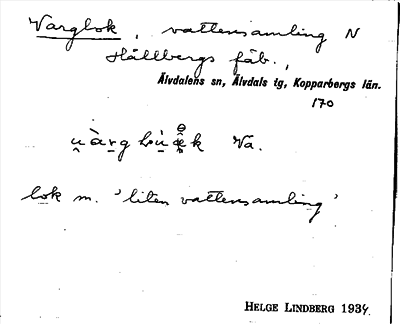 Vargbok, vattensamling N
Hållbergs fäb.,
Älvdalens sn, Älvdals tg, Kopparbergs län.
170
Va.
lok m. 'liten vattensamling'
HELGE LINDBERG 1934.